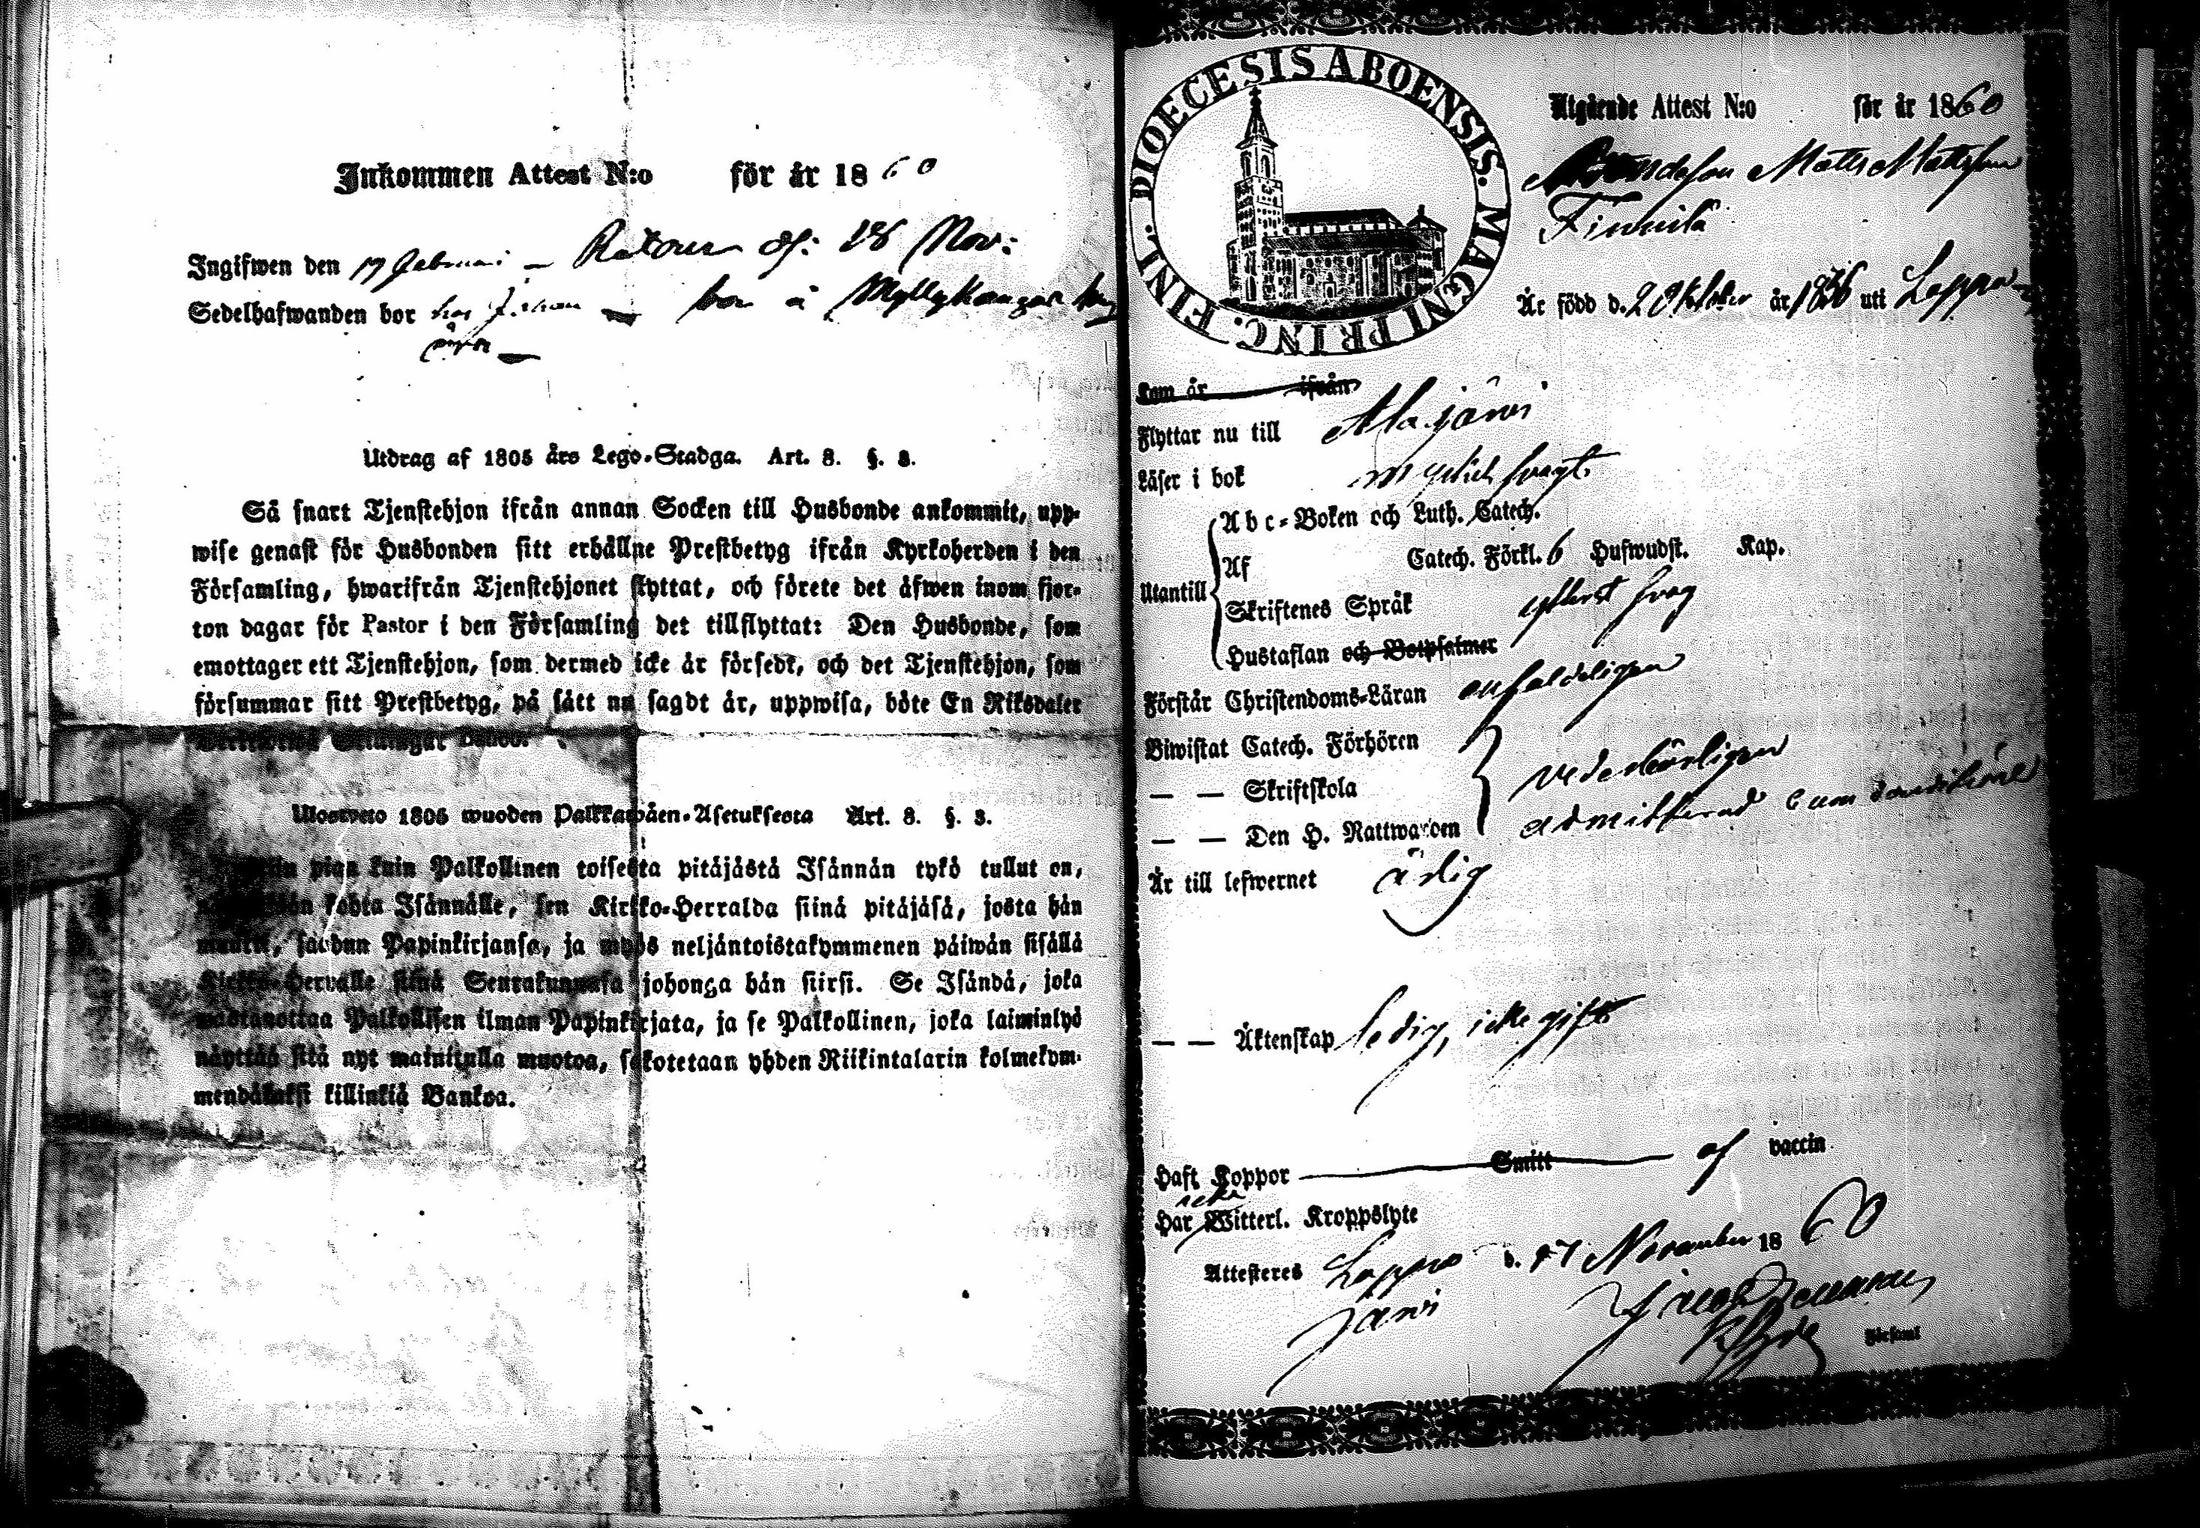 Inkommen Attest N:o för år 1860
Ingifwen den 17 Februari — Retour af: 18 Nov:
Sedelhafwanden bor hos — bor å Myllykangas
Utdrag af 1805 års Lego-Stadga. Art. 8. §. 3.
Så snart Tjenstehjon ifrån annan Socken till Husbonde ankommit, upp-
wise genast för Husbonden sitt erhållne Prestbetyg ifrån Kyrkoherden i den
Församling, hwarifrån Tjenstehjonet flyttat, och förete det äfwen inom fjor-
ton dagar för Pastor i den Församling det tillflyttat: Den Husbonde, som
emottager ett Tjenstehjon, som dermed icke är försedt, och det Tjenstehjon, som
försummar sitt Prestbetyg, på sätt nu sagdt är, uppwisa, böte En Riksdaler
Ulosweto 1805 wuoden Palkkawäen-Asetuksesta Art. 8. §. 3.
pian kuin Palkollinen toisesta pitäjästä Isännän tykö tullut on,
kohta Isännälle, sen Kirkko-Herralda siinä pitäjäsä, josta hän
muutti, saadun Papinkirjansa, ja myös neljäntoistakymmenen päiwän sisällä
Kirkko-Herralle siinä Seurakunnasa johonga hän siirsi. Se Isändä, joka
wastanottaa Palkollisen ilman Papinkirjata, ja se Palkollinen, joka laiminlyö
näyttää sitä nyt mainitulla muotoa, sakotetaan yhden Riikintalarin kolmekym-
mendäkaksi killinkiä Bankoa.
DIOECESIS ABOENSIS. MAGNI PRINC. FINL.
Utgående Attest N:o för år 1860
Matts Mattsson
Finnilä
Är född d. 2 Oktober år 1836 uti Lappo
Kom år ifrån
Flyttar nu till Alajärwi
Läser i bok mycket swagt
Abc-Boken och Luth. Catech.
Utantill Af Catech. Förkl. 6 Hufwudst. Kap.
Skriftenes Språk ytterst swag
Hustaflan och Botpsalmer
Förstår Christendoms-Läran enfaldeligen
Biwistat Catech. Förhören
— — Skriftskola vederbörligen
— — Den H. Nattwarden admitterad cum conditione
Är till lefwernet ärlig
— — Äktenskap ledig, icke gift
Haft Koppor Smitt af vaccin
icke
Har Witterl. Kroppslyte
Attesteres Lappo d. 17 November 1860
järwi
Församl